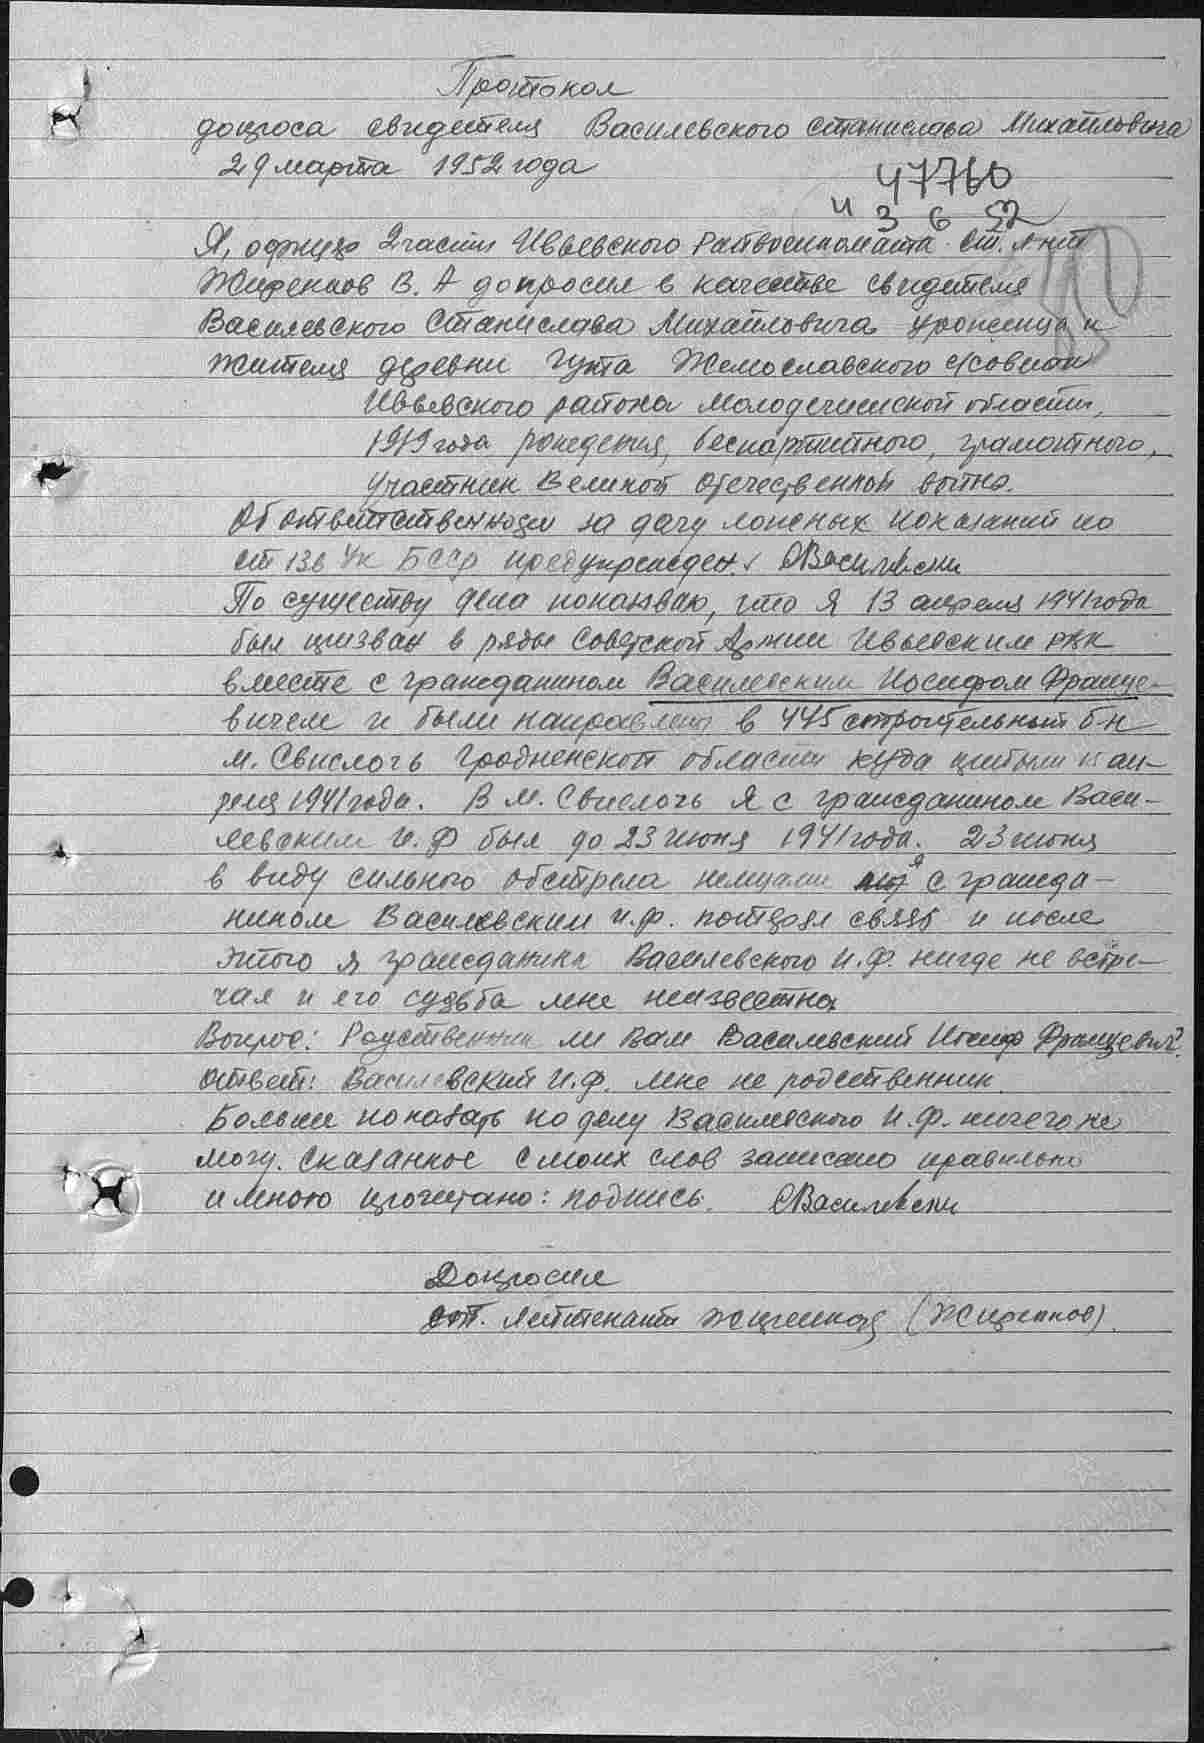 Протокол
допроса свидетеля Василевского Станислава Михайловича
29 марта 1952 года
47760
и 3 6 52
Я, офицер 2 части Ивьевского Райвоенкомата ст. л-нт
Жиренков В. А допросил в качестве свидетеля
Василевского Станислава Михайловича уроженца и
жителя деревни Гута Жемославского с/совета
Ивьевского района Молодечненской области,
1919 года рождения, беспартийного, грамотного,
участник Великой Отечественной войны.
Об ответственности за дачу ложных показаний по
ст 136 Ук БССР предупрежден. СВасилевски
По существу дела показываю, что Я 13 апреля 1941 года
был призван в ряды Советской Армии Ивьевским РВК
вместе с гражданином Василевским Иосифом Франце-
вичем и были направлены в 445 строительный б-н
м. Свислочь Гродненской области куда прибыли 15 ап-
реля 1941 года. В м. Свислочь Я с гражданином Васи-
левским И.Ф был до 23 июня 1941 года. 23 июня
в виду сильного обстрела немцами я с гражда-
нином Василевским И.Ф. потерял связь и после
этого я гражданина Василевского И.Ф. нигде не встре-
чал и его судьба мне неизвестна
Вопрос: Родственник ли Вам Василевский Иосиф Францевич?
Ответ: Василевский И.Ф. мне не родственник.
Больше показать по делу Василевского И.Ф. ничего не
могу. Сказанное с моих слов записано правильно
и мною прочитано: подпись. СВасилевски
Допросил
ст. Лейтенант (Жиренков).